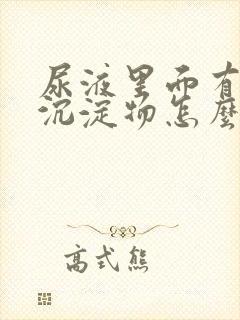 尿液里面有
沉淀物怎麼
高式熊